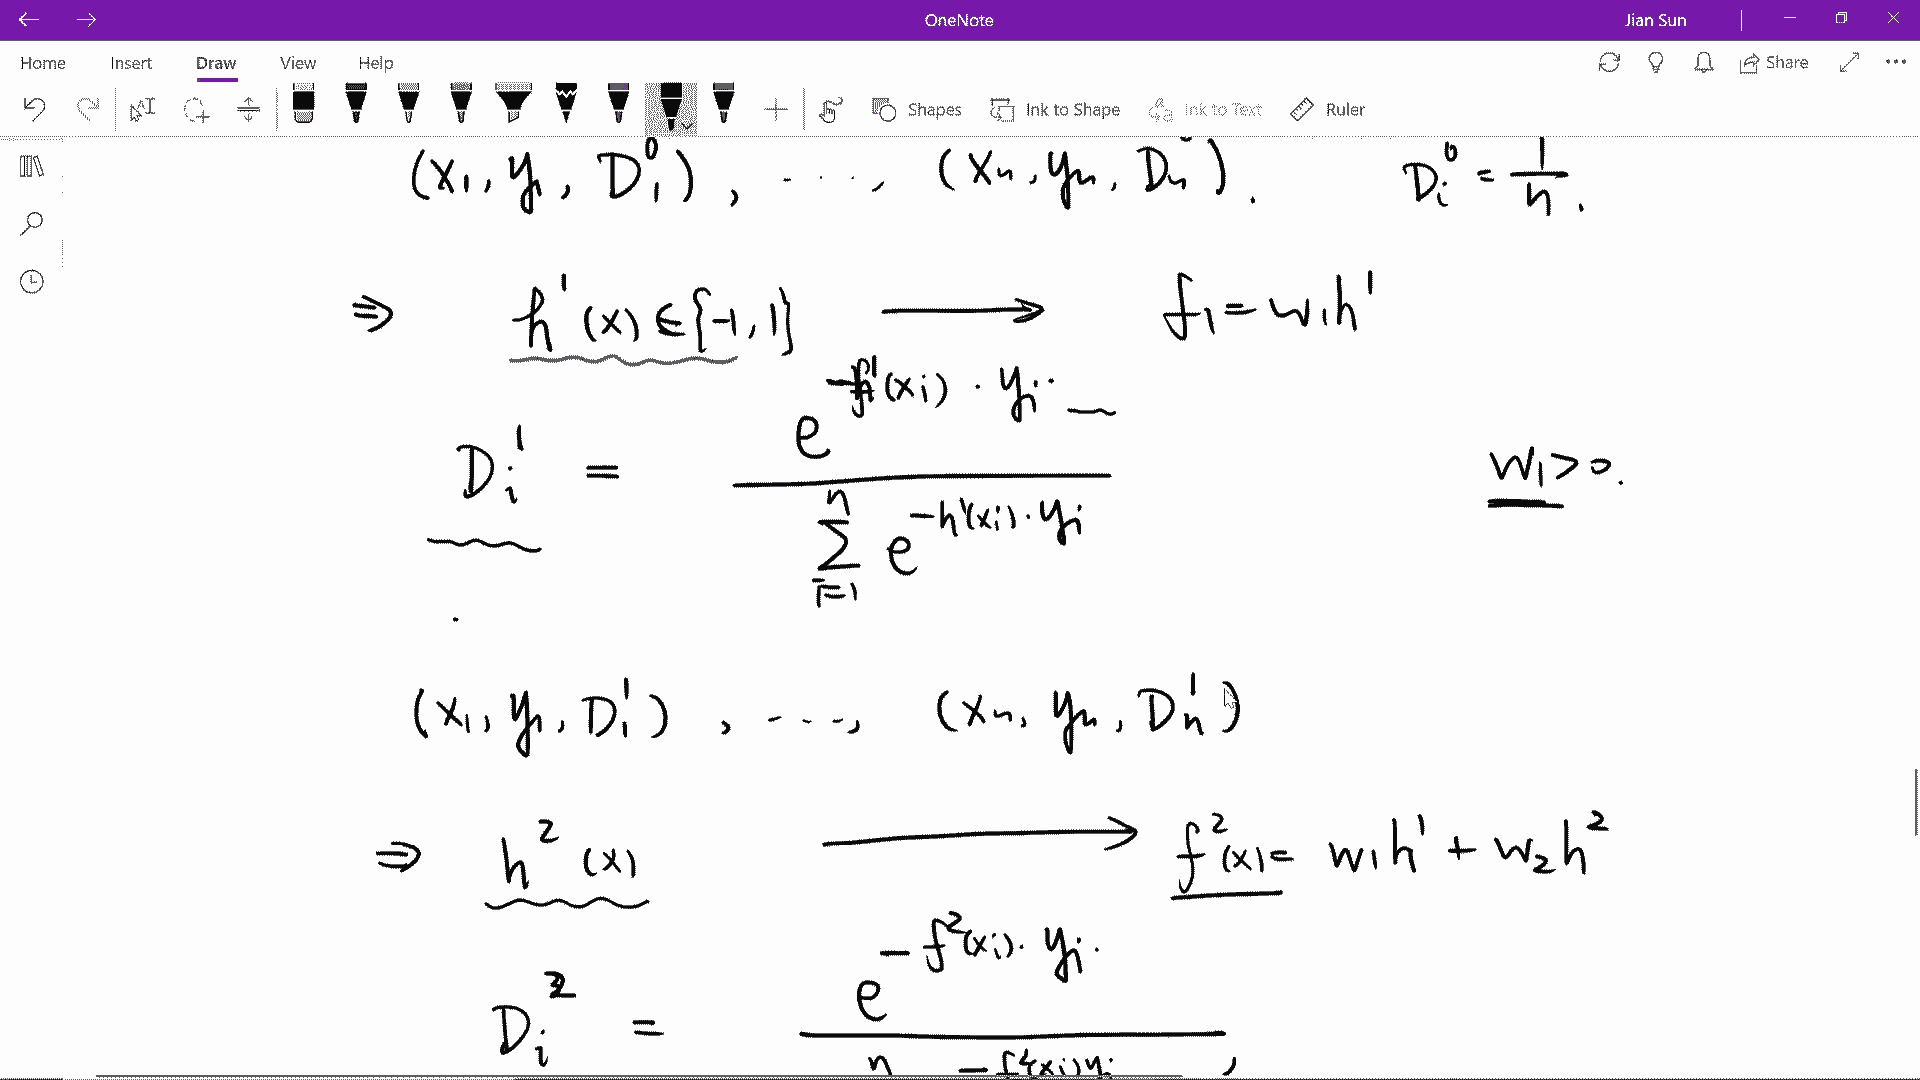 OneNote Jian Sun
Home Insert Draw View Help Share
Shapes Ink to Shape Ink to Text Ruler
(x₁, y₁, D₁⁰), ...., (xₙ, yₙ, Dₙ). Dᵢ⁰ = 1/n.
⇒ h¹(x) ∈ {-1, 1} ⟶ f₁ = w₁h¹
Dᵢ¹ = e^{-f¹(xᵢ)·yᵢ} / ∑_{i=1}^{n} e^{-h¹(xᵢ)·yᵢ} w₁ > 0.
(x₁, y₁, D₁¹), ...., (xₙ, yₙ, Dₙ¹)
⇒ h²(x) ⟶ f²(x) = w₁h¹ + w₂h²
Dᵢ² = e^{-f²(xᵢ)·yᵢ} /
n - f²(xᵢ)yᵢ ,